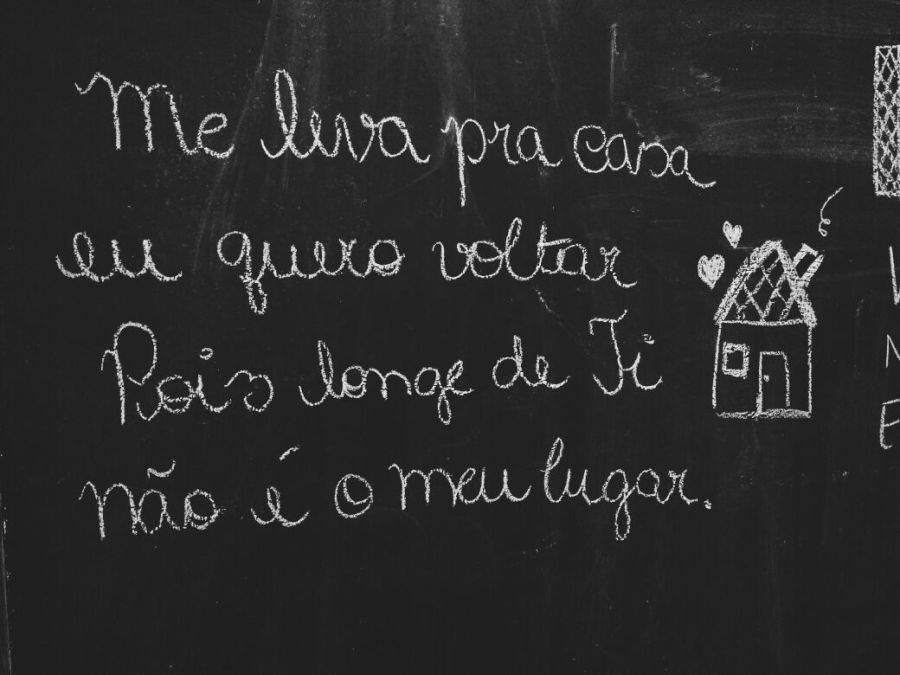 Me leva pra casa
eu quero voltar
Pois longe de Ti
não é o meu lugar.